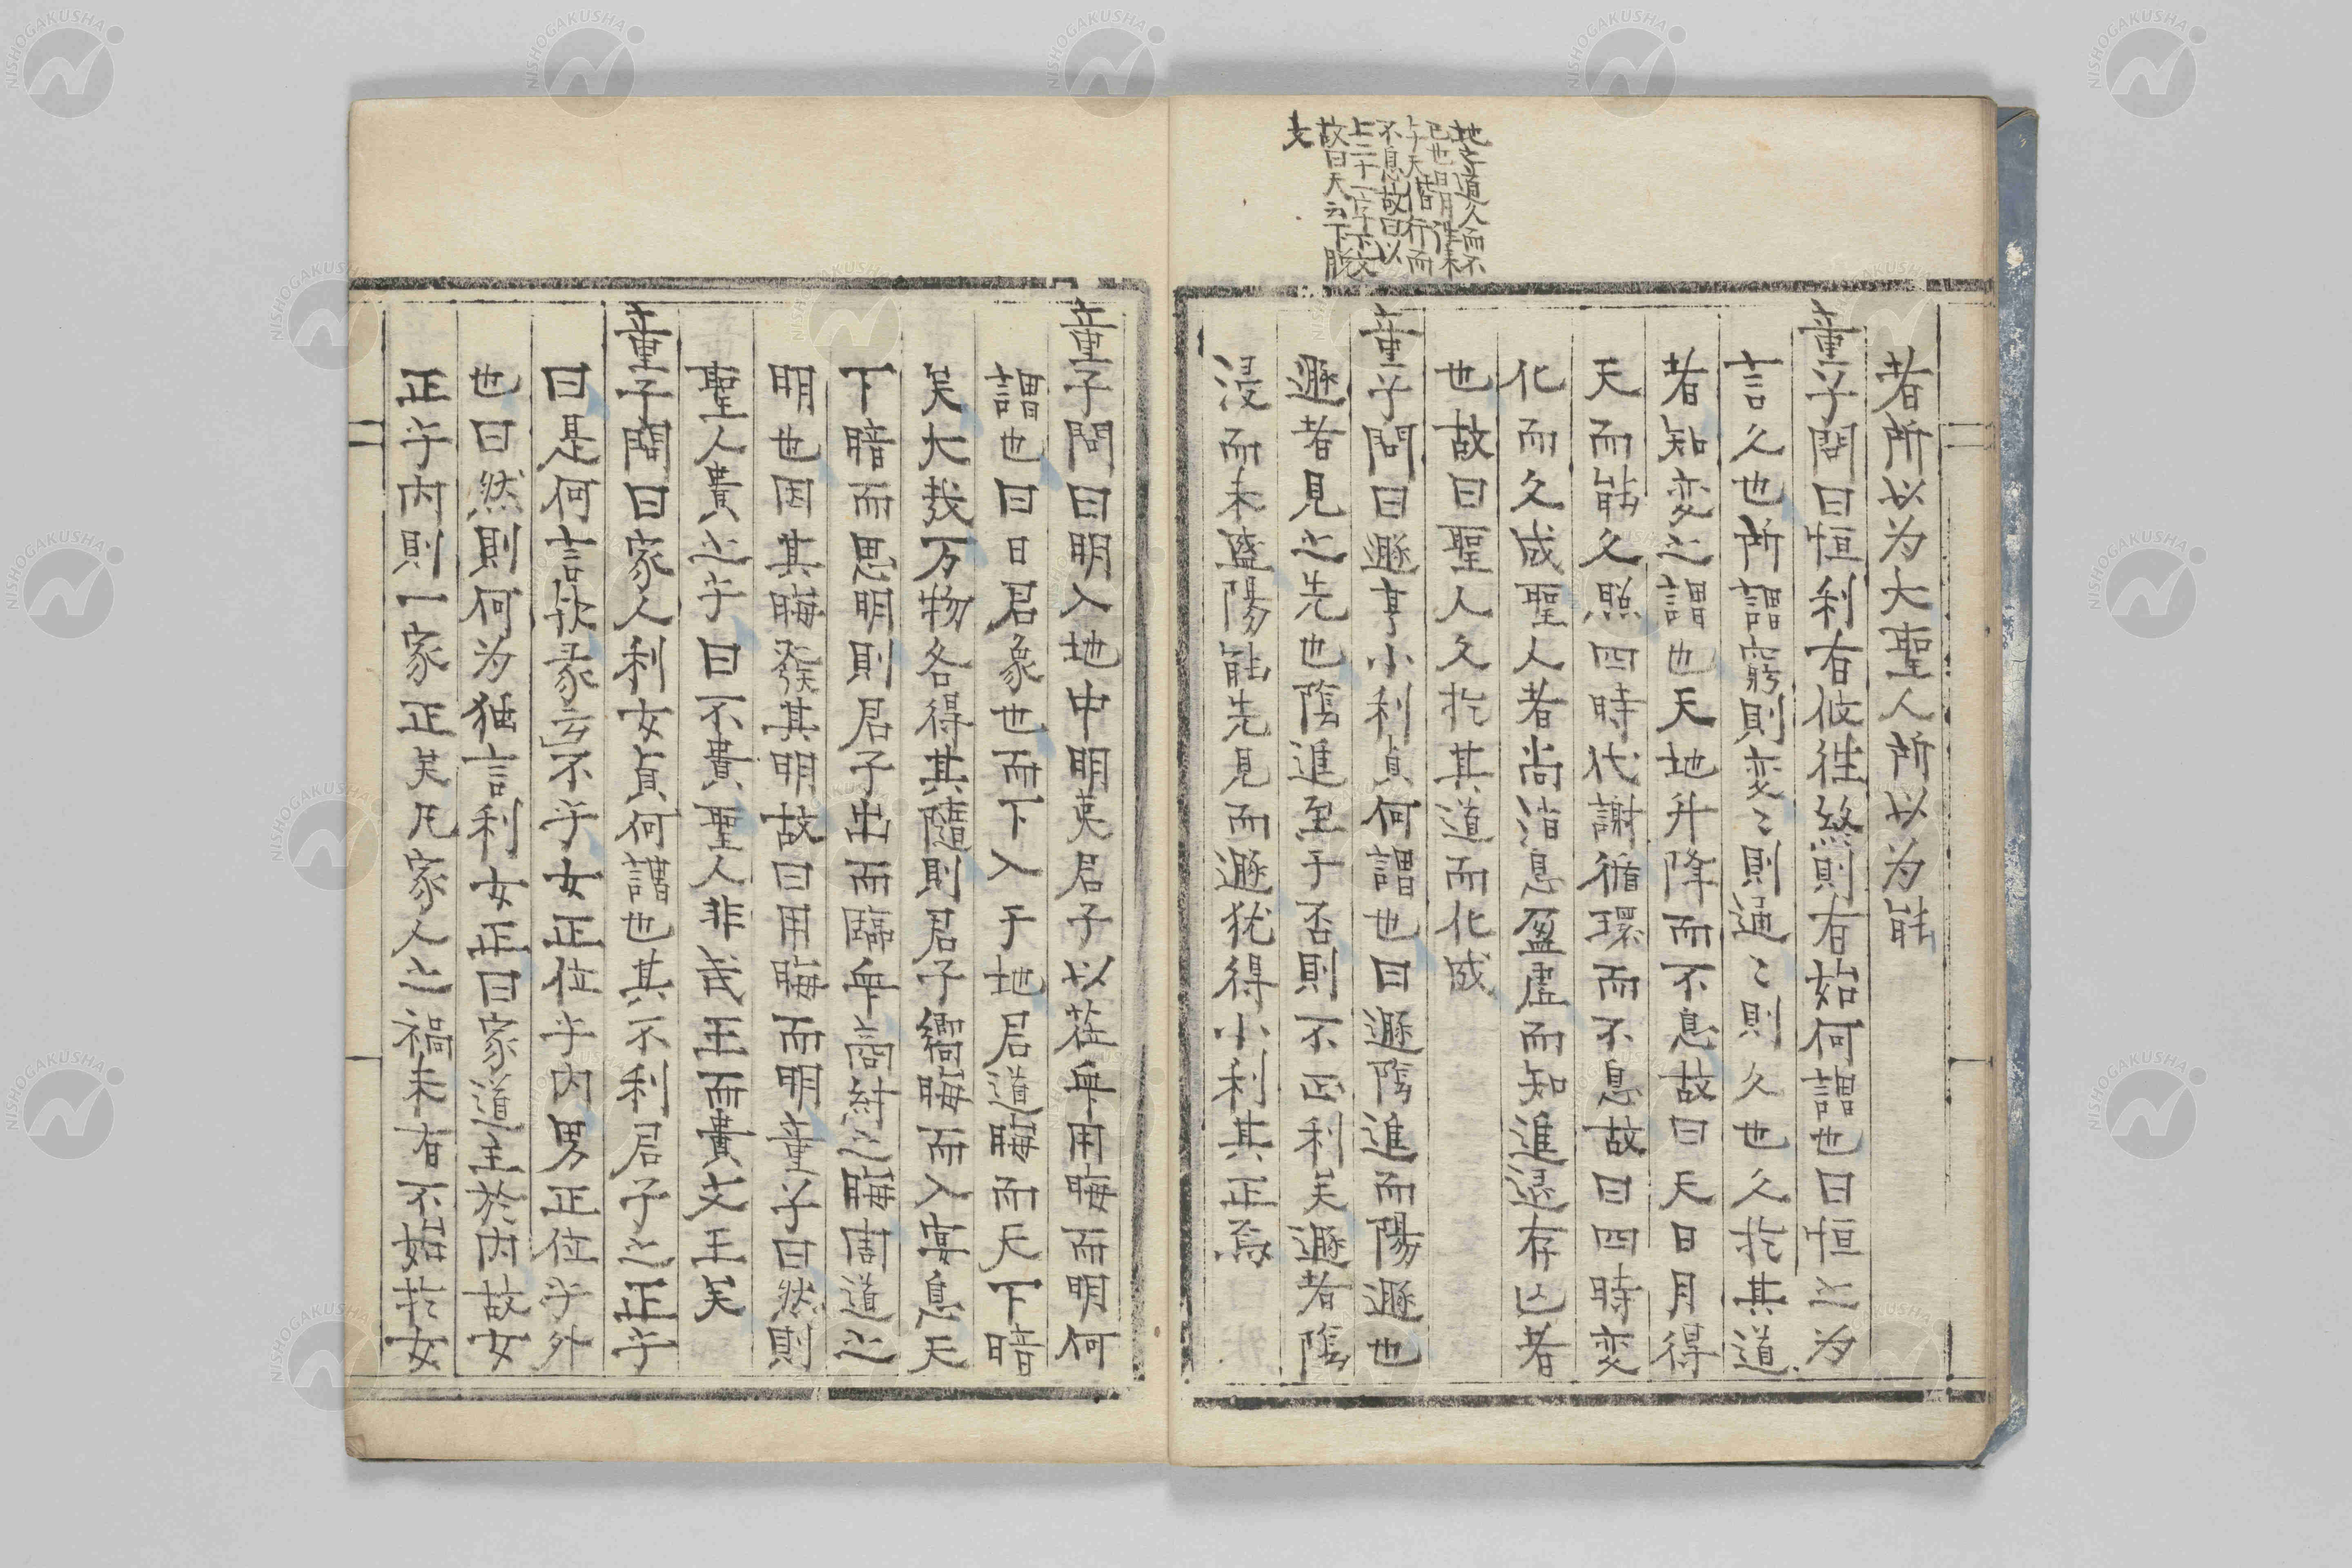 地之道久而不
已也日月往来
于天皆有而
不息故曰以
上二十一字不必
故曰天云下脱
文
者所以为大聖人所以为能
童子問曰恒利有攸往終則有始何謂也曰恒之为
言久也所謂窮則変〻則通〻則久也久扵其道
者知変之謂也天地升降而不息故曰天日月得
天而能久照四時代謝循環而不息故曰四時変
化而久成聖人者尚消息盈虚而知進退存亾者
也故曰聖人久扵其道而化成
童子問曰遯亨小利貞何謂也曰遯陰進而陽遯也
遯者見之先也陰進至于否則不正利矣遯者陰
浸而未盛陽能先見而遯犹得小利其正焉
童子問曰明入地中明夷君子以莅衆用晦而明何
謂也曰日君象也而下入于地君道晦而天下暗
矣大哉万物各得其隨則君子嚮晦而入宴息天
下暗而思明則君子出而臨衆商紂之晦周道之
明也因其晦發其明故曰用晦而明童子曰然則
聖人貴之乎曰不貴聖人非武王而貴文王矣
童子問曰家人利女貞何謂也其不利君子之正乎
曰是何言欤彖云不乎女正位乎内男正位乎外
也曰然則何为独言利女正曰家道主於内故女
正乎内則一家正矣凡家人之禍未有不始扵女
NISHOGAKUSHA